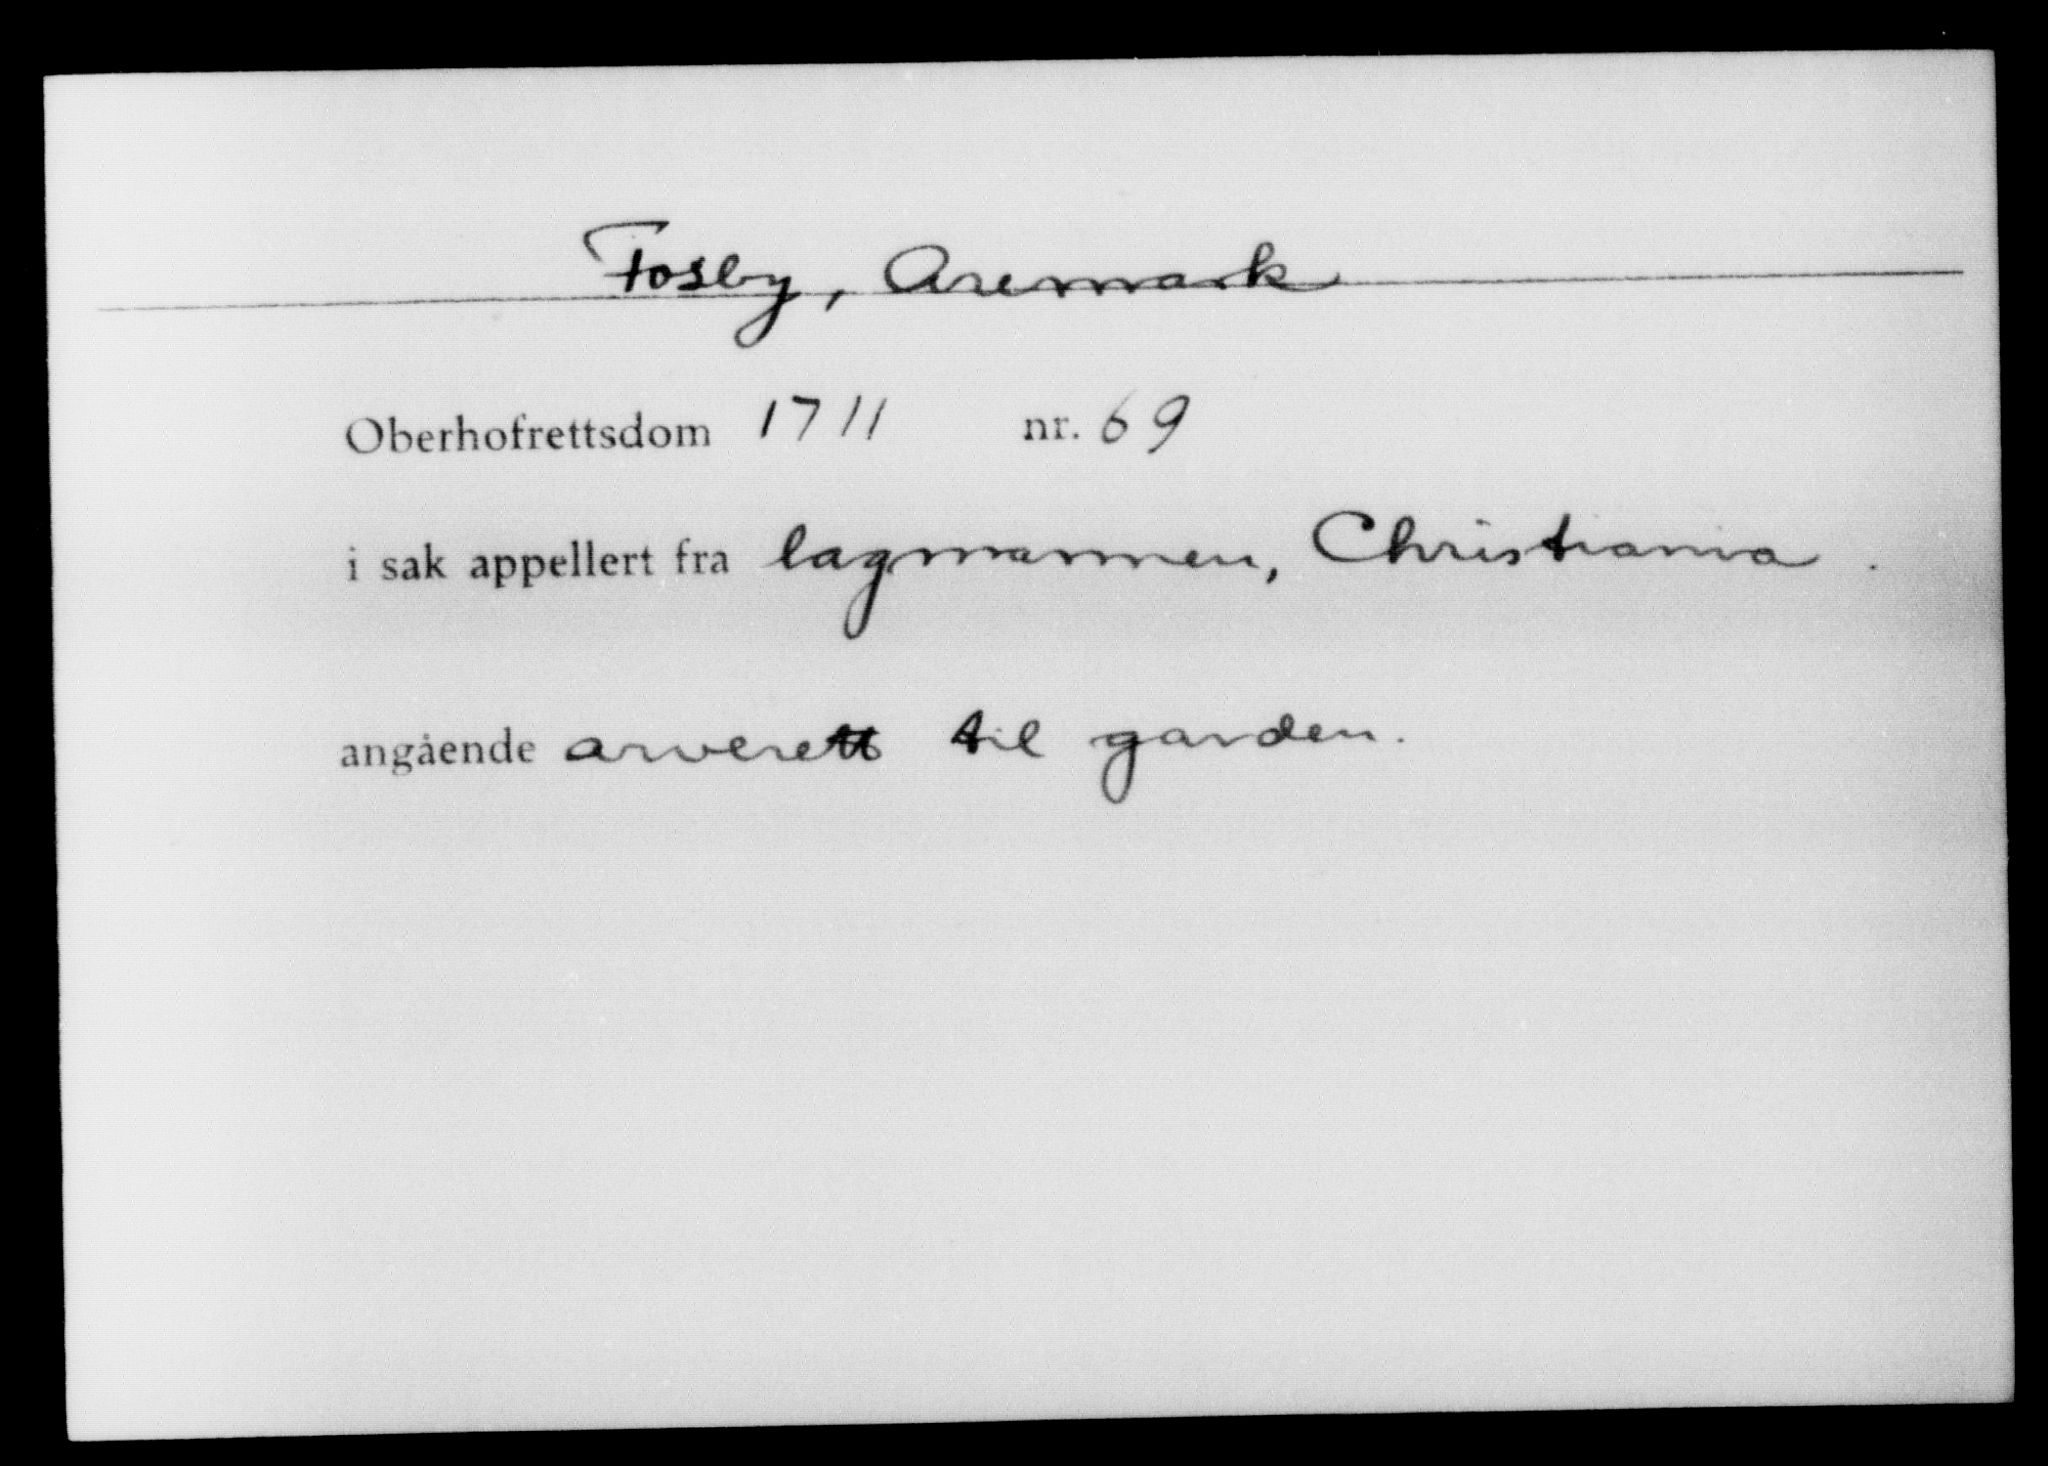 Fosby, Aremark
Oberhofrettsdom 1711 nr. 69
i sak appellert fra lagmannen, Christiania .
angående arverett til garden.